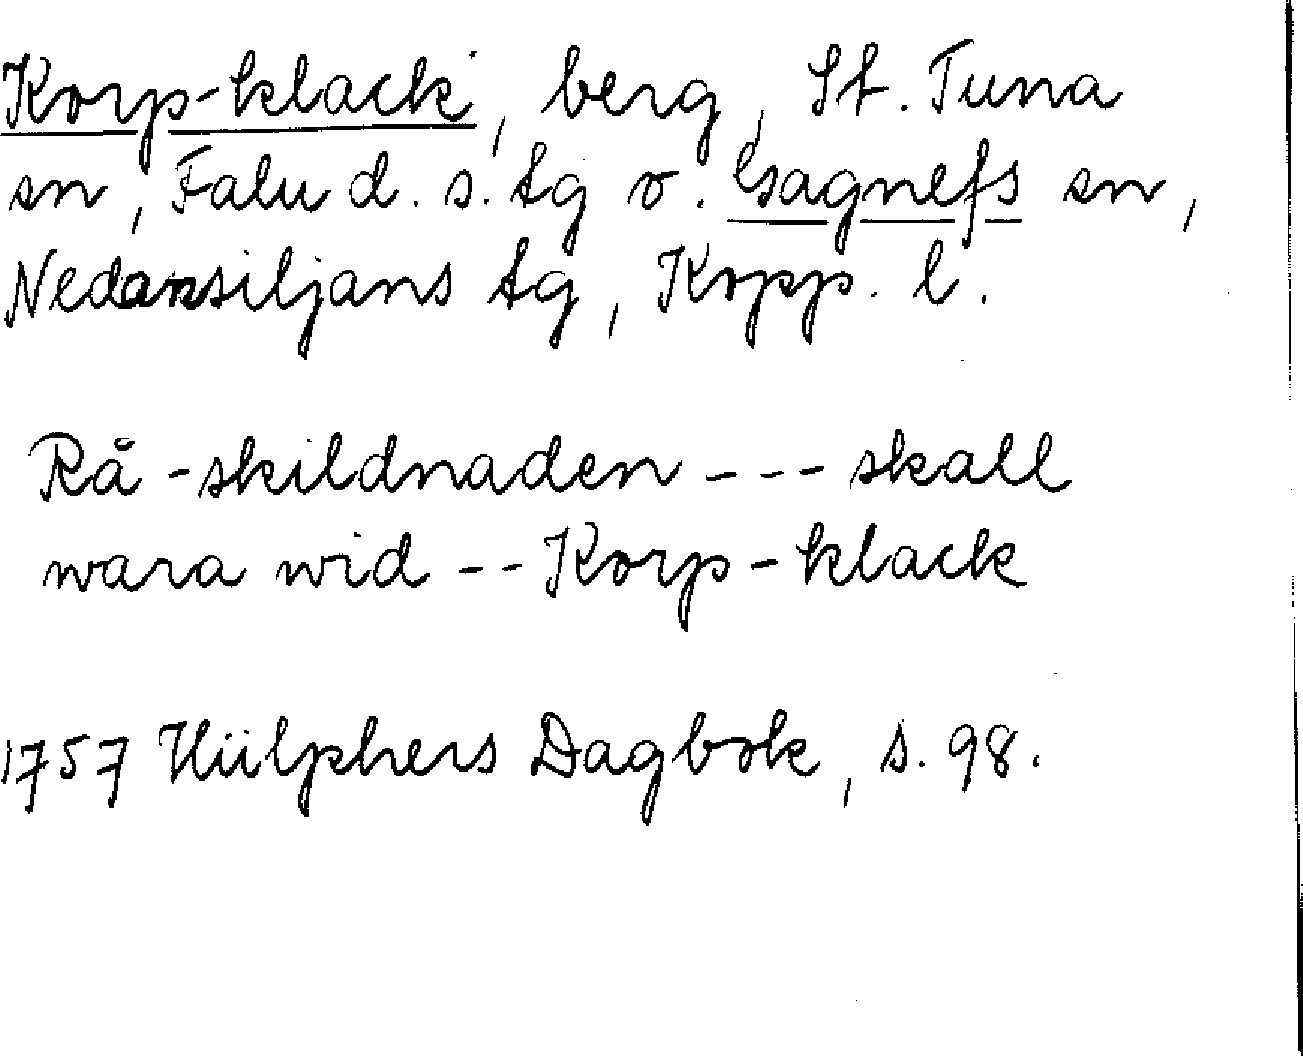 Korp-klack, berg, St. Tuna
sn, Falu d. s. tg o. Gagnefs sn,
Nedansiljans tg, Kopp. l.
Rå-skildnaden --- skall
wara wid -- Korp-klack
1757 Hülphers Dagbok, s. 98.